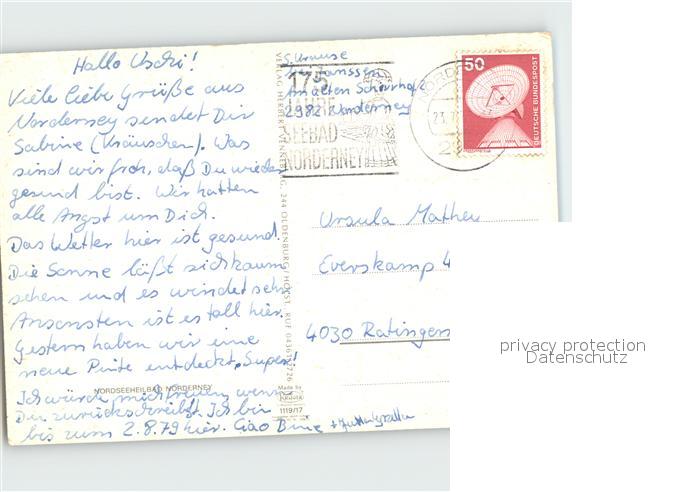 Hallo Uschi!
Viele liebe Grüße aus
Norderney sendet Dir
Sabine (Kräuschen). Was
sind wir froh, daß Du wieder
gesund bist. Wir hatten
alle Angst um Dich.
Das Wetter hier ist gesund.
Die Sonne läßt sich kaum
sehen und es windet sehr.
Ansonsten ist es toll hier.
Gestern haben wir eine
neue Pinte entdeckt, Super!
Ich würde mich freuen, wenn
Du zurückschreibst. Ich bin
bis zum 2.8.79 hier. Ciao Bine
NORDSEEHEILBAD NORDERNEY
244 OLDENBURG/HOLST., RUF 04361
Made by
1119/17
S. Krause
Janssen
2982 Norderney
175
JAHRE
SEEBAD
NORDERNEY
50
DEUTSCHE BUNDESPOST
Ursula
Everskamp 4
4030 Ratingen
privacy protection
Datenschutz